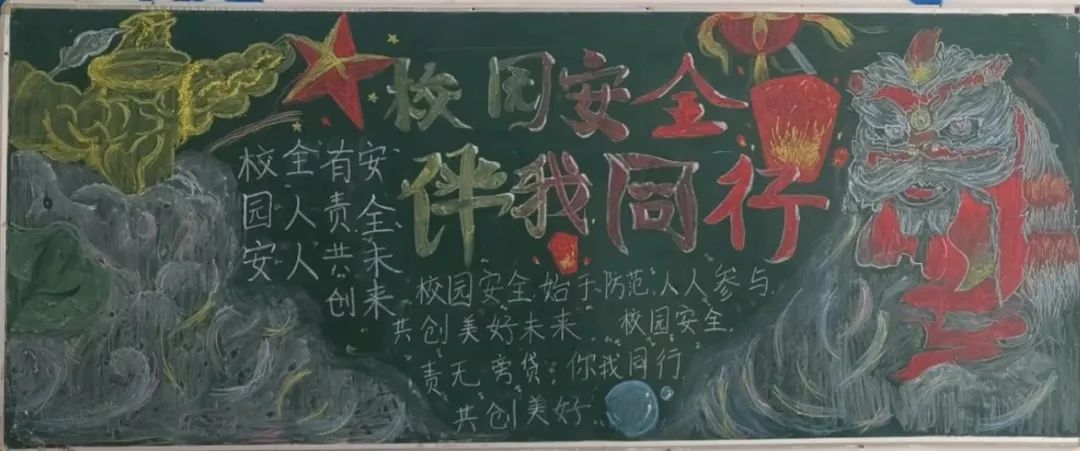 校园安全
伴我同行
校园安
全人人
有责共创
安全来来
校园安全,始于防范,人人参与,
共创美好未来...校园安全,
责无旁贷;你我同行.
共创美好...